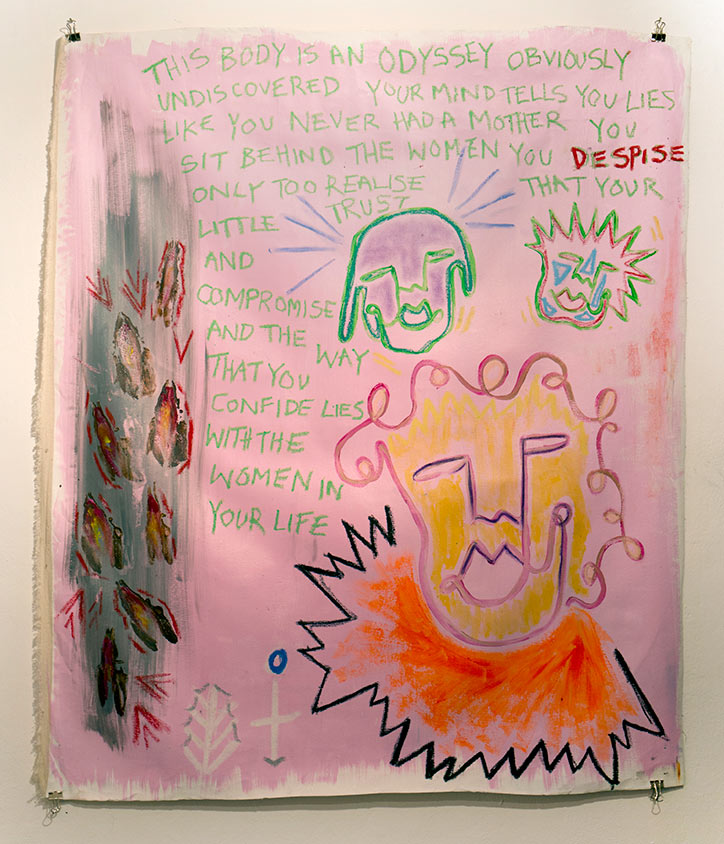 THIS BODY IS AN ODYSSEY OBVIOUSLY
UNDISCOVERED YOUR MIND TELLS YOU LIES
LIKE YOU NEVER HAD A MOTHER YOU
SIT BEHIND THE WOMEN YOU DESPISE
ONLY TOO REALISE THAT YOUR
LITTLE TRUST
AND
COMPROMISE
AND THE WAY
THAT YOU
CONFIDE LIES
WITH THE
WOMEN IN
YOUR LIFE